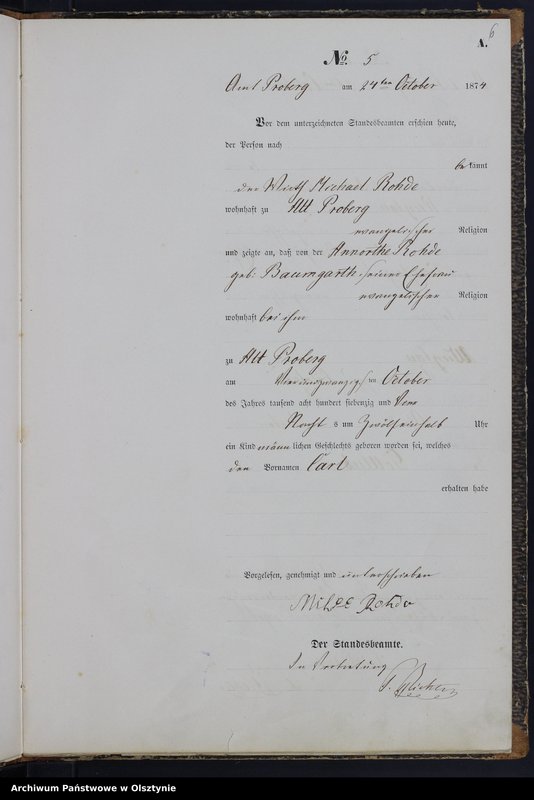 6
A.
No. 5
Amt Proberg am 24ten October 1874
Vor dem unterzeichneten Standesbeamten erschien heute,
der Person nach
bekannt
der Wirth Michael Rohde
wohnhaft zu Alt Proberg
evangelischer Religion
und zeigte an, daß von der Annorthe Rohde
geb: Baumgarth, seiner Ehefrau
evangelischer Religion
wohnhaft bei ihm
zu Alt Proberg
am Vierundzwanzigsten October
des Jahres tausend acht hundert siebenzig und Vier
Nachts um Zwölfeinhalb Uhr
ein Kind männlichen Geschlechts geboren worden sei, welches
den Vornamen Carl
erhalten habe
Vorgelesen, genehmigt und unterschrieben
Rohde
Der Standesbeamte.
In Vertretung
Archiwum Państwowe w Olsztynie